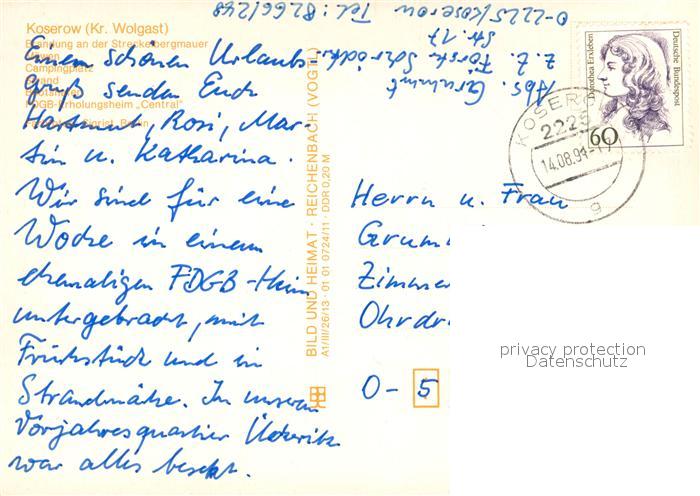 Koserow (Kr. Wolgast)
Brandung an der Streckelbergmauer
Campingplatz
Strand
FDGB-Erholungsheim „Central"
Einen schönen Urlaubs-
gruß senden Euch
Hartmut, Rosi, Mar-
tin u. Katharina.
Wir sind für eine
Woche in einem
ehemaligen FDGB-Heim
untergebracht, mit
Frühstück und in
Strandnähe. In unserem
Vorjahresquartier Ückeritz
war alles besetzt.
BILD UND HEIMAT · REICHENBACH (VOGTL.)
A1/III/26/13 · 01 01 0724/11 · DDR 0,20 M
Abs. Grummt
z. Z. Förster-Schrödter-
Str. 17
O-2225/Koserow Tel: 8266/248
Dorothea Erxleben
Deutsche Bundespost
60
KOSEROW
2225
14.08.91-17
g
Herrn u. Frau
Grum
Zimmer
Ohrdr
O- 5
privacy protection
Datenschutz